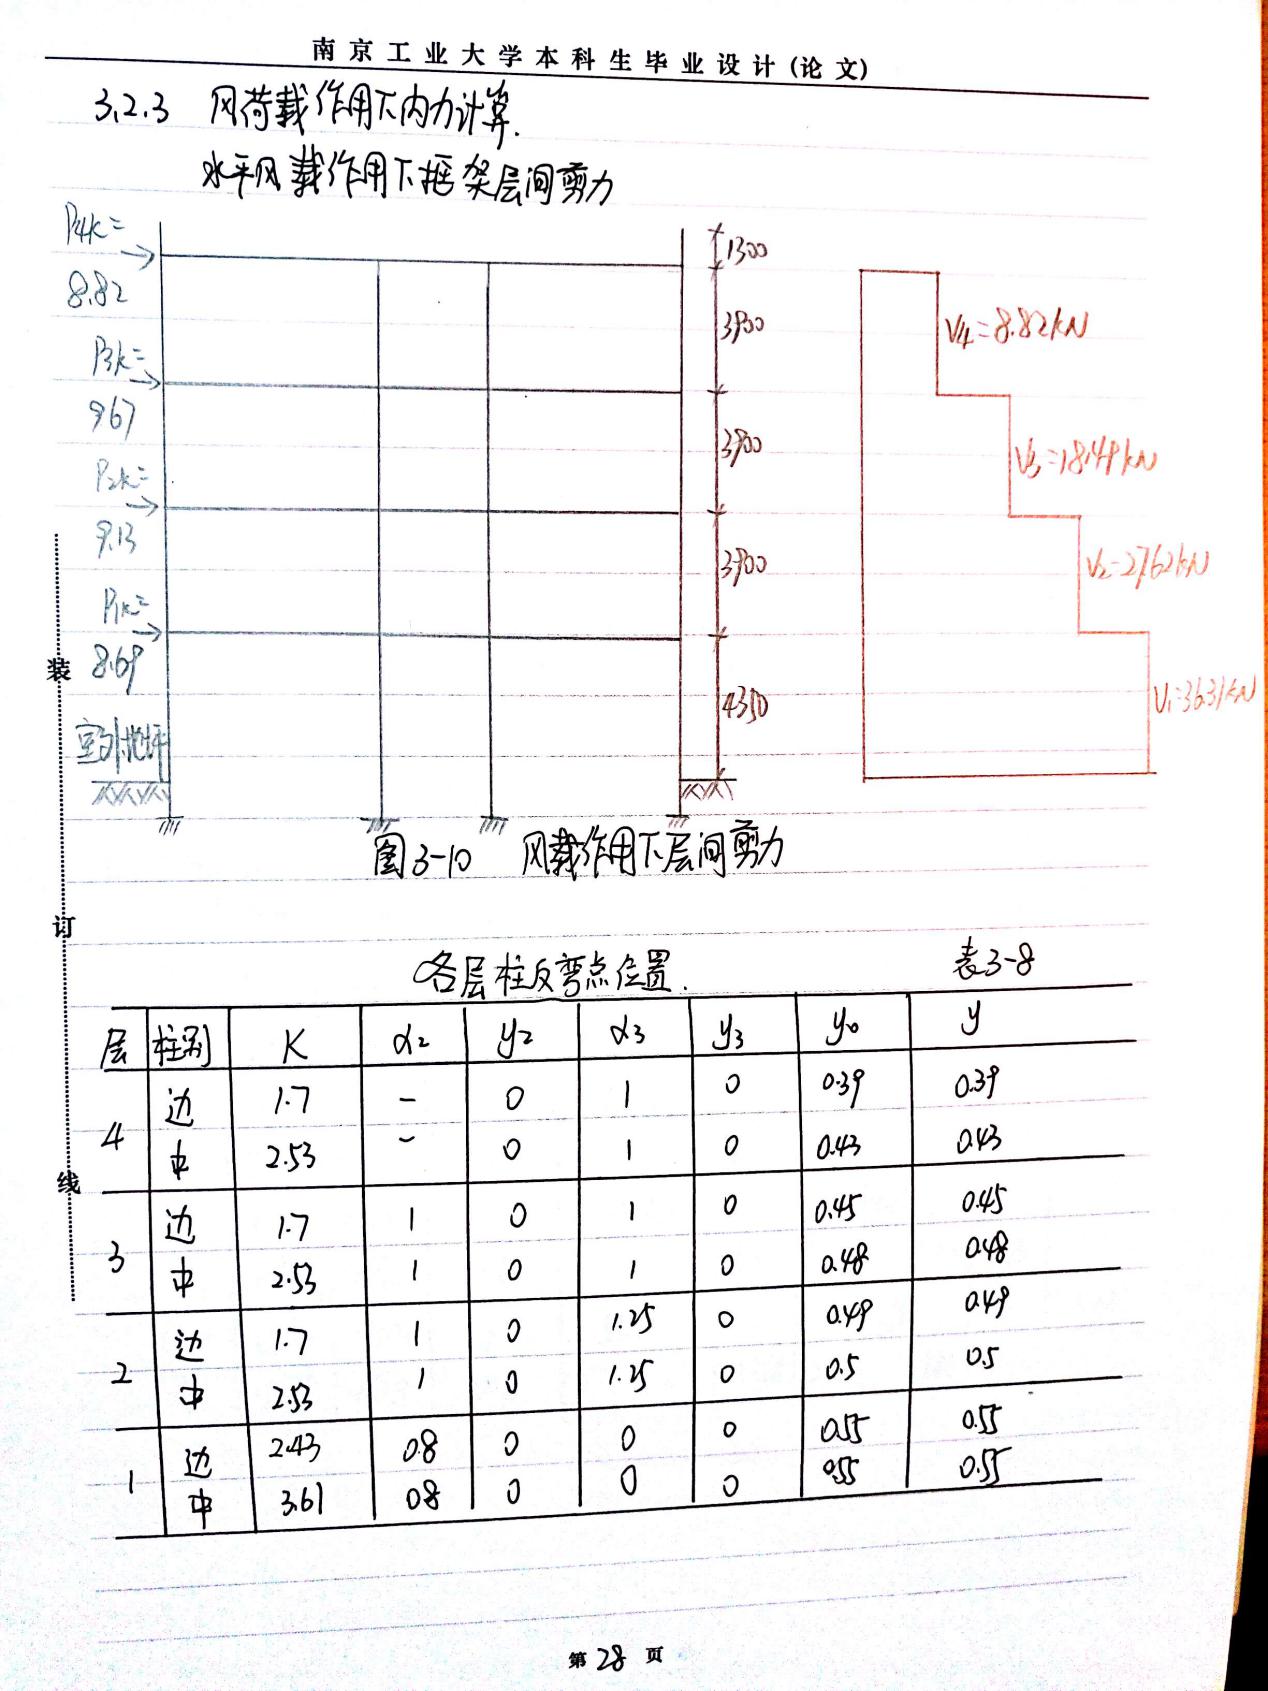 南京工业大学本科生毕业设计(论文)
3.2.3 风荷载作用下内力计算.
水平风载作用下框架层间剪力
P4k=
8.82
P3k=
9.67
P2k=
9.13
P1k=
8.69
室外地坪
1300
3900
3900
3900
4350
V4=8.82kN
V3=18.49kN
V2=27.62kN
V1=36.31kN
图3-10 风载作用下层间剪力
装
订
线
各层柱反弯点位置. 表3-8
层 柱别 K α2 y2 α3 y3 y0 y
4 边 1.7 - 0 1 0 0.39 0.39
中 2.53 - 0 1 0 0.43 0.43
3 边 1.7 1 0 1 0 0.45 0.45
中 2.53 1 0 1 0 0.48 0.48
2 边 1.7 1 0 1.25 0 0.49 0.49
中 2.53 1 0 1.25 0 0.5 0.5
1 边 2.43 0.8 0 0 0 0.55 0.55
中 3.61 0.8 0 0 0 0.55 0.55
第28页